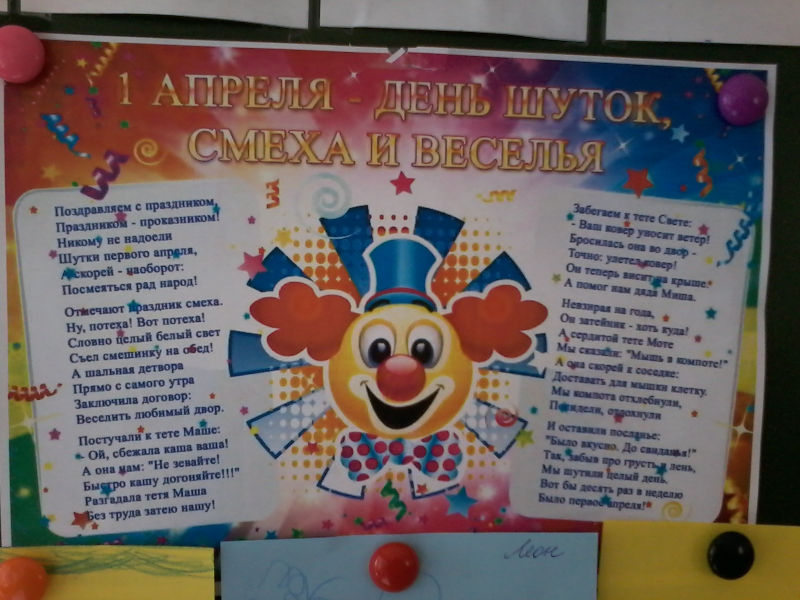 1 АПРЕЛЯ - ДЕНЬ ШУТОК,
СМЕХА И ВЕСЕЛЬЯ
Поздравляем с праздником,
Праздником - проказником!
Никому не надоели
Шутки первого апреля,
А скорей - наоборот:
Посмеяться рад народ!
Отмечают праздник смеха.
Ну, потеха! Вот потеха!
Словно целый белый свет
Съел смешинку на обед!
А шальная детвора
Прямо с самого утра
Заключила договор:
Веселить любимый двор.
Постучали к тете Маше:
- Ой, сбежала каша ваша!
А она нам: "Не зевайте!
Быстро кашу догоняйте!!!"
Разгадала тетя Маша
Без труда затею нашу!
Забегаем к тете Свете:
- Ваш ковер уносит ветер!
Бросилась она во двор -
Точно: улетел ковер!
Он теперь висит на крыше.
А помог нам дядя Миша.
Невзирая на года,
Он затейник - хоть куда!
А сердитой тете Моте
Мы сказали: "Мышь в компоте!"
А она скорей к соседке:
Доставать для мышки клетку.
Мы компота отхлебнули,
Посидели, отдохнули
И оставили посланье:
"Было вкусно. До свиданья!"
Так, забыв про грусть и лень,
Мы шутили целый день.
Вот бы десять раз в неделю
Было первое апреля!
Леон